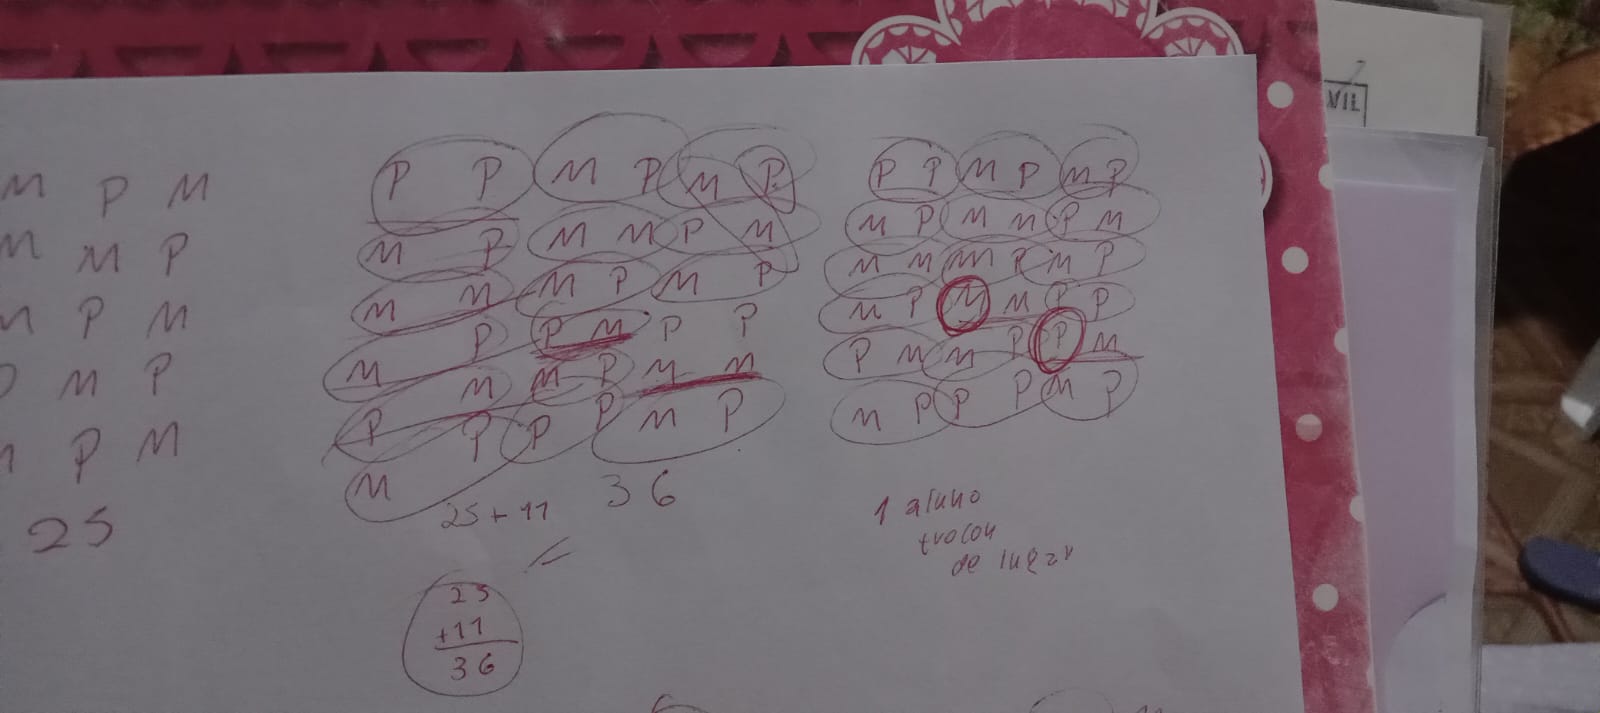 M P M
M M P
M P M
M P
P M
25
P P M P M P
M P M M P M
M M M P M P
M P P M P P
P M M P M M
M P P P M P
25 + 11
36
25
+11
36
P P M P M P
M P M M P M
M M M P M P
M P M M P P
P M M P P M
M P P P M P
1 aluno
trocou
de lugar
VIL